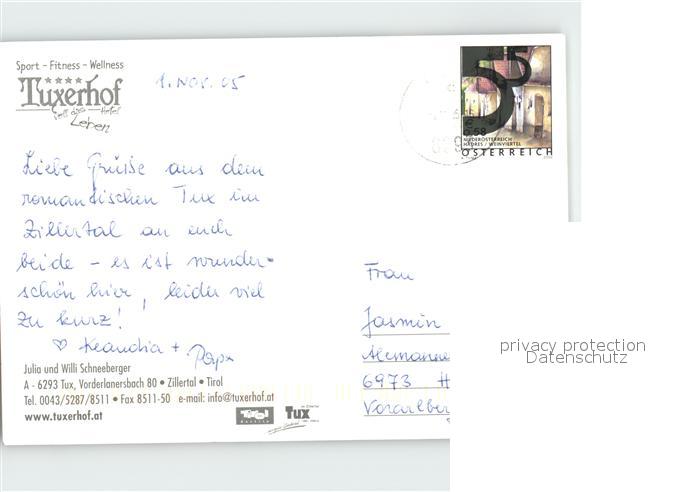 Sport - Fitness - Wellness
Tuxerhof
Leben
1. Nov. 05
55
0,58
NIEDERÖSTERREICH
HADRES / WEINVIERTEL
ÖSTERREICH
Liebe Grüße aus dem
romantischen Tux im
Zillertal an euch
beide - es ist wunder-
schön hier, leider viel
zu kurz!
♡ Klaudia + Papa
Frau
Jasmin
Alemanne
6973 H
Vorarlber
privacy protection
Datenschutz
Julia und Willi Schneeberger
A - 6293 Tux, Vorderlanersbach 80 • Zillertal • Tirol
Tel. 0043/5287/8511 • Fax 8511-50 e-mail: info@tuxerhof.at
www.tuxerhof.at
Tirol
Tux